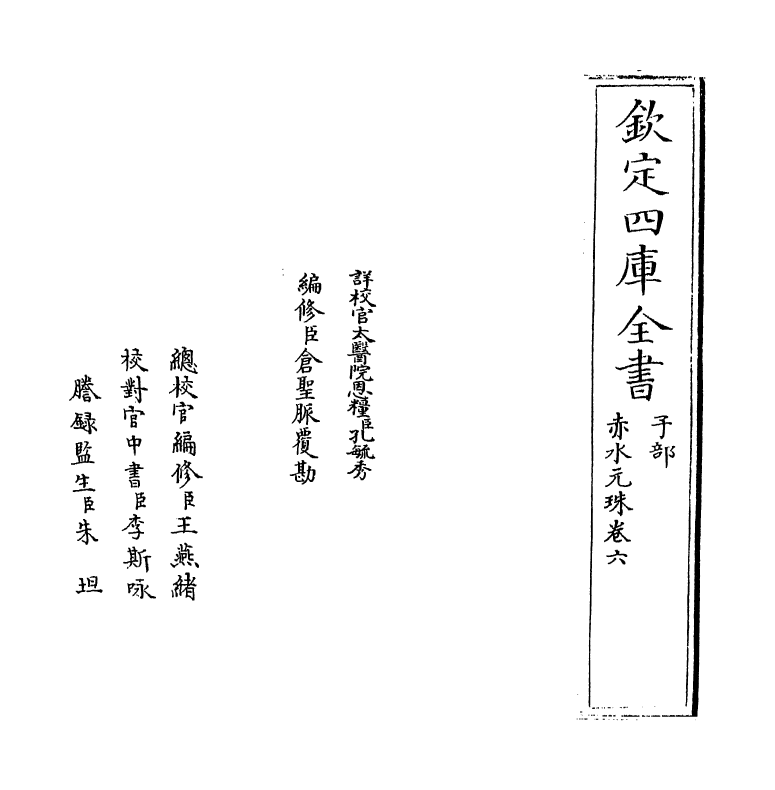 欽定四庫全書
子部
赤水元珠卷六
詳校官太醫院恩糧臣孔毓秀
編修臣倉聖脈覆勘
總校官編修臣王燕緒
校對官中書臣李斯咏
謄録監生臣朱坦